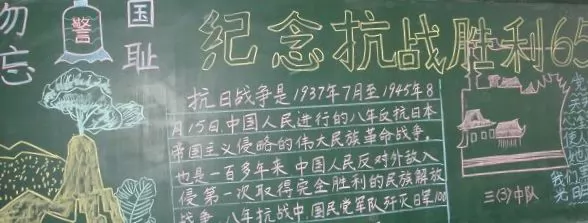 勿忘
国耻
警
纪念抗战胜利65
抗日战争是1937年7月至1945年8
月15日中国人民进行的八年反抗日本
帝国主义侵略的伟大民族革命战争，
也是一百多年来中国人民反对外敌入
侵第一次取得完全胜利的民族解放
战争。八年抗战中国民党军队歼灭日军100
三(3)中队